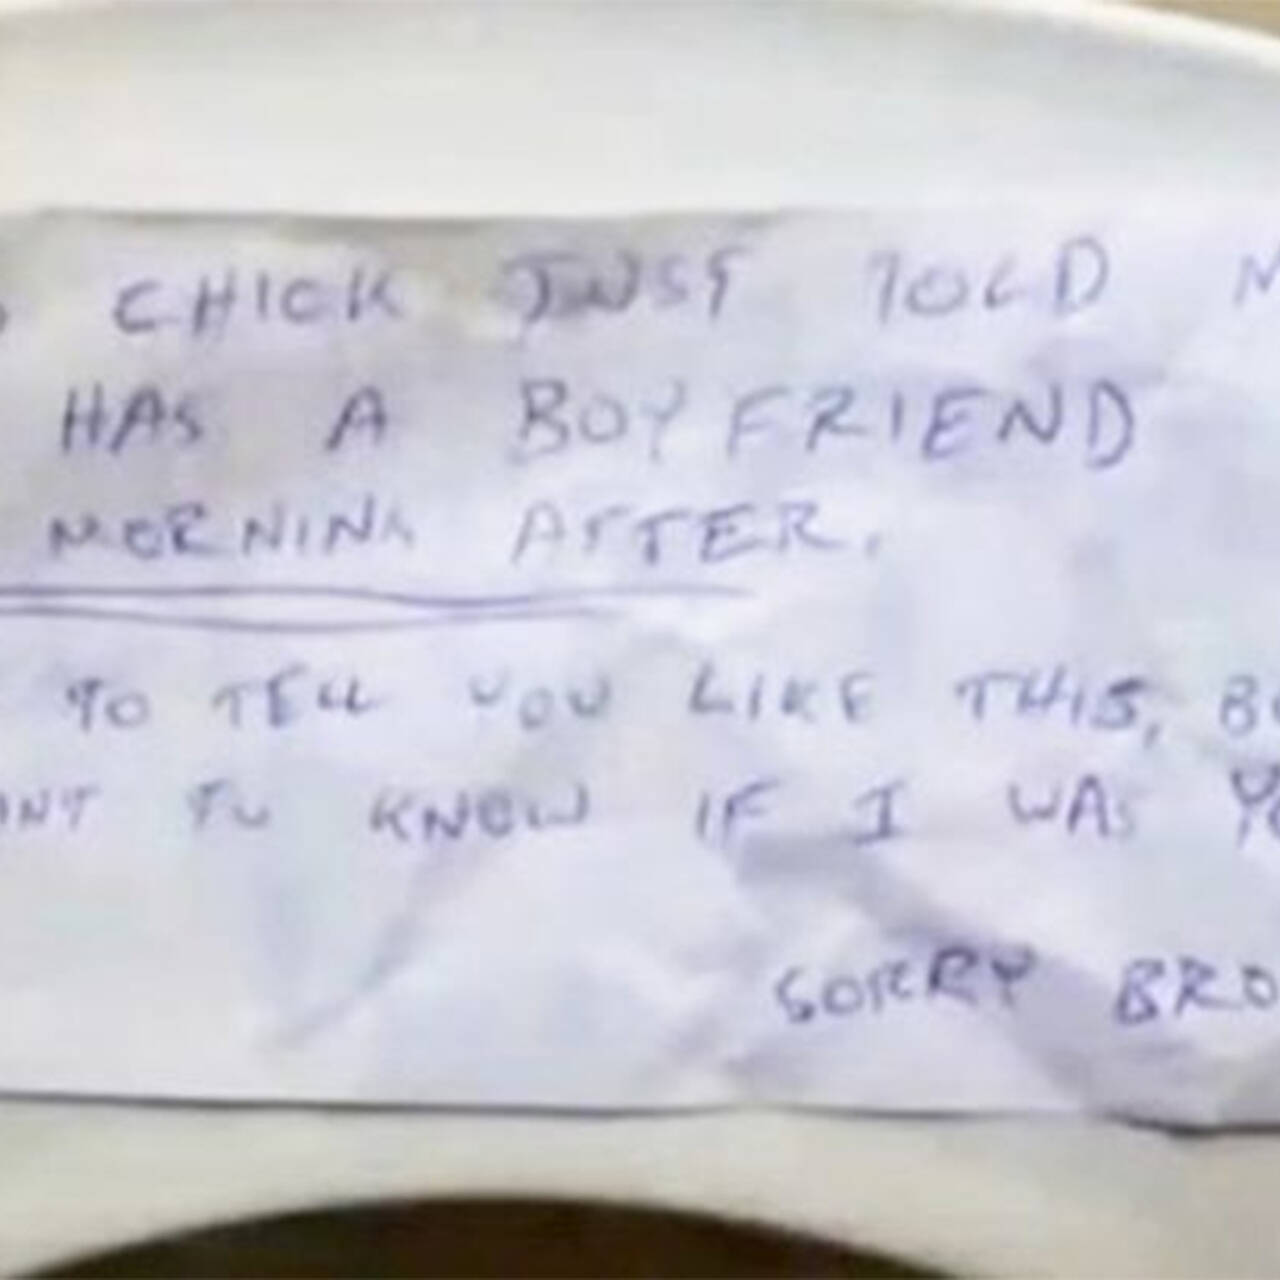 CHICK JUST TOLD
HAS A BOYFRIEND
MORNING AFTER.
TO TELL YOU LIKE THIS,
TO KNOW IF I WAS
SORRY BRO